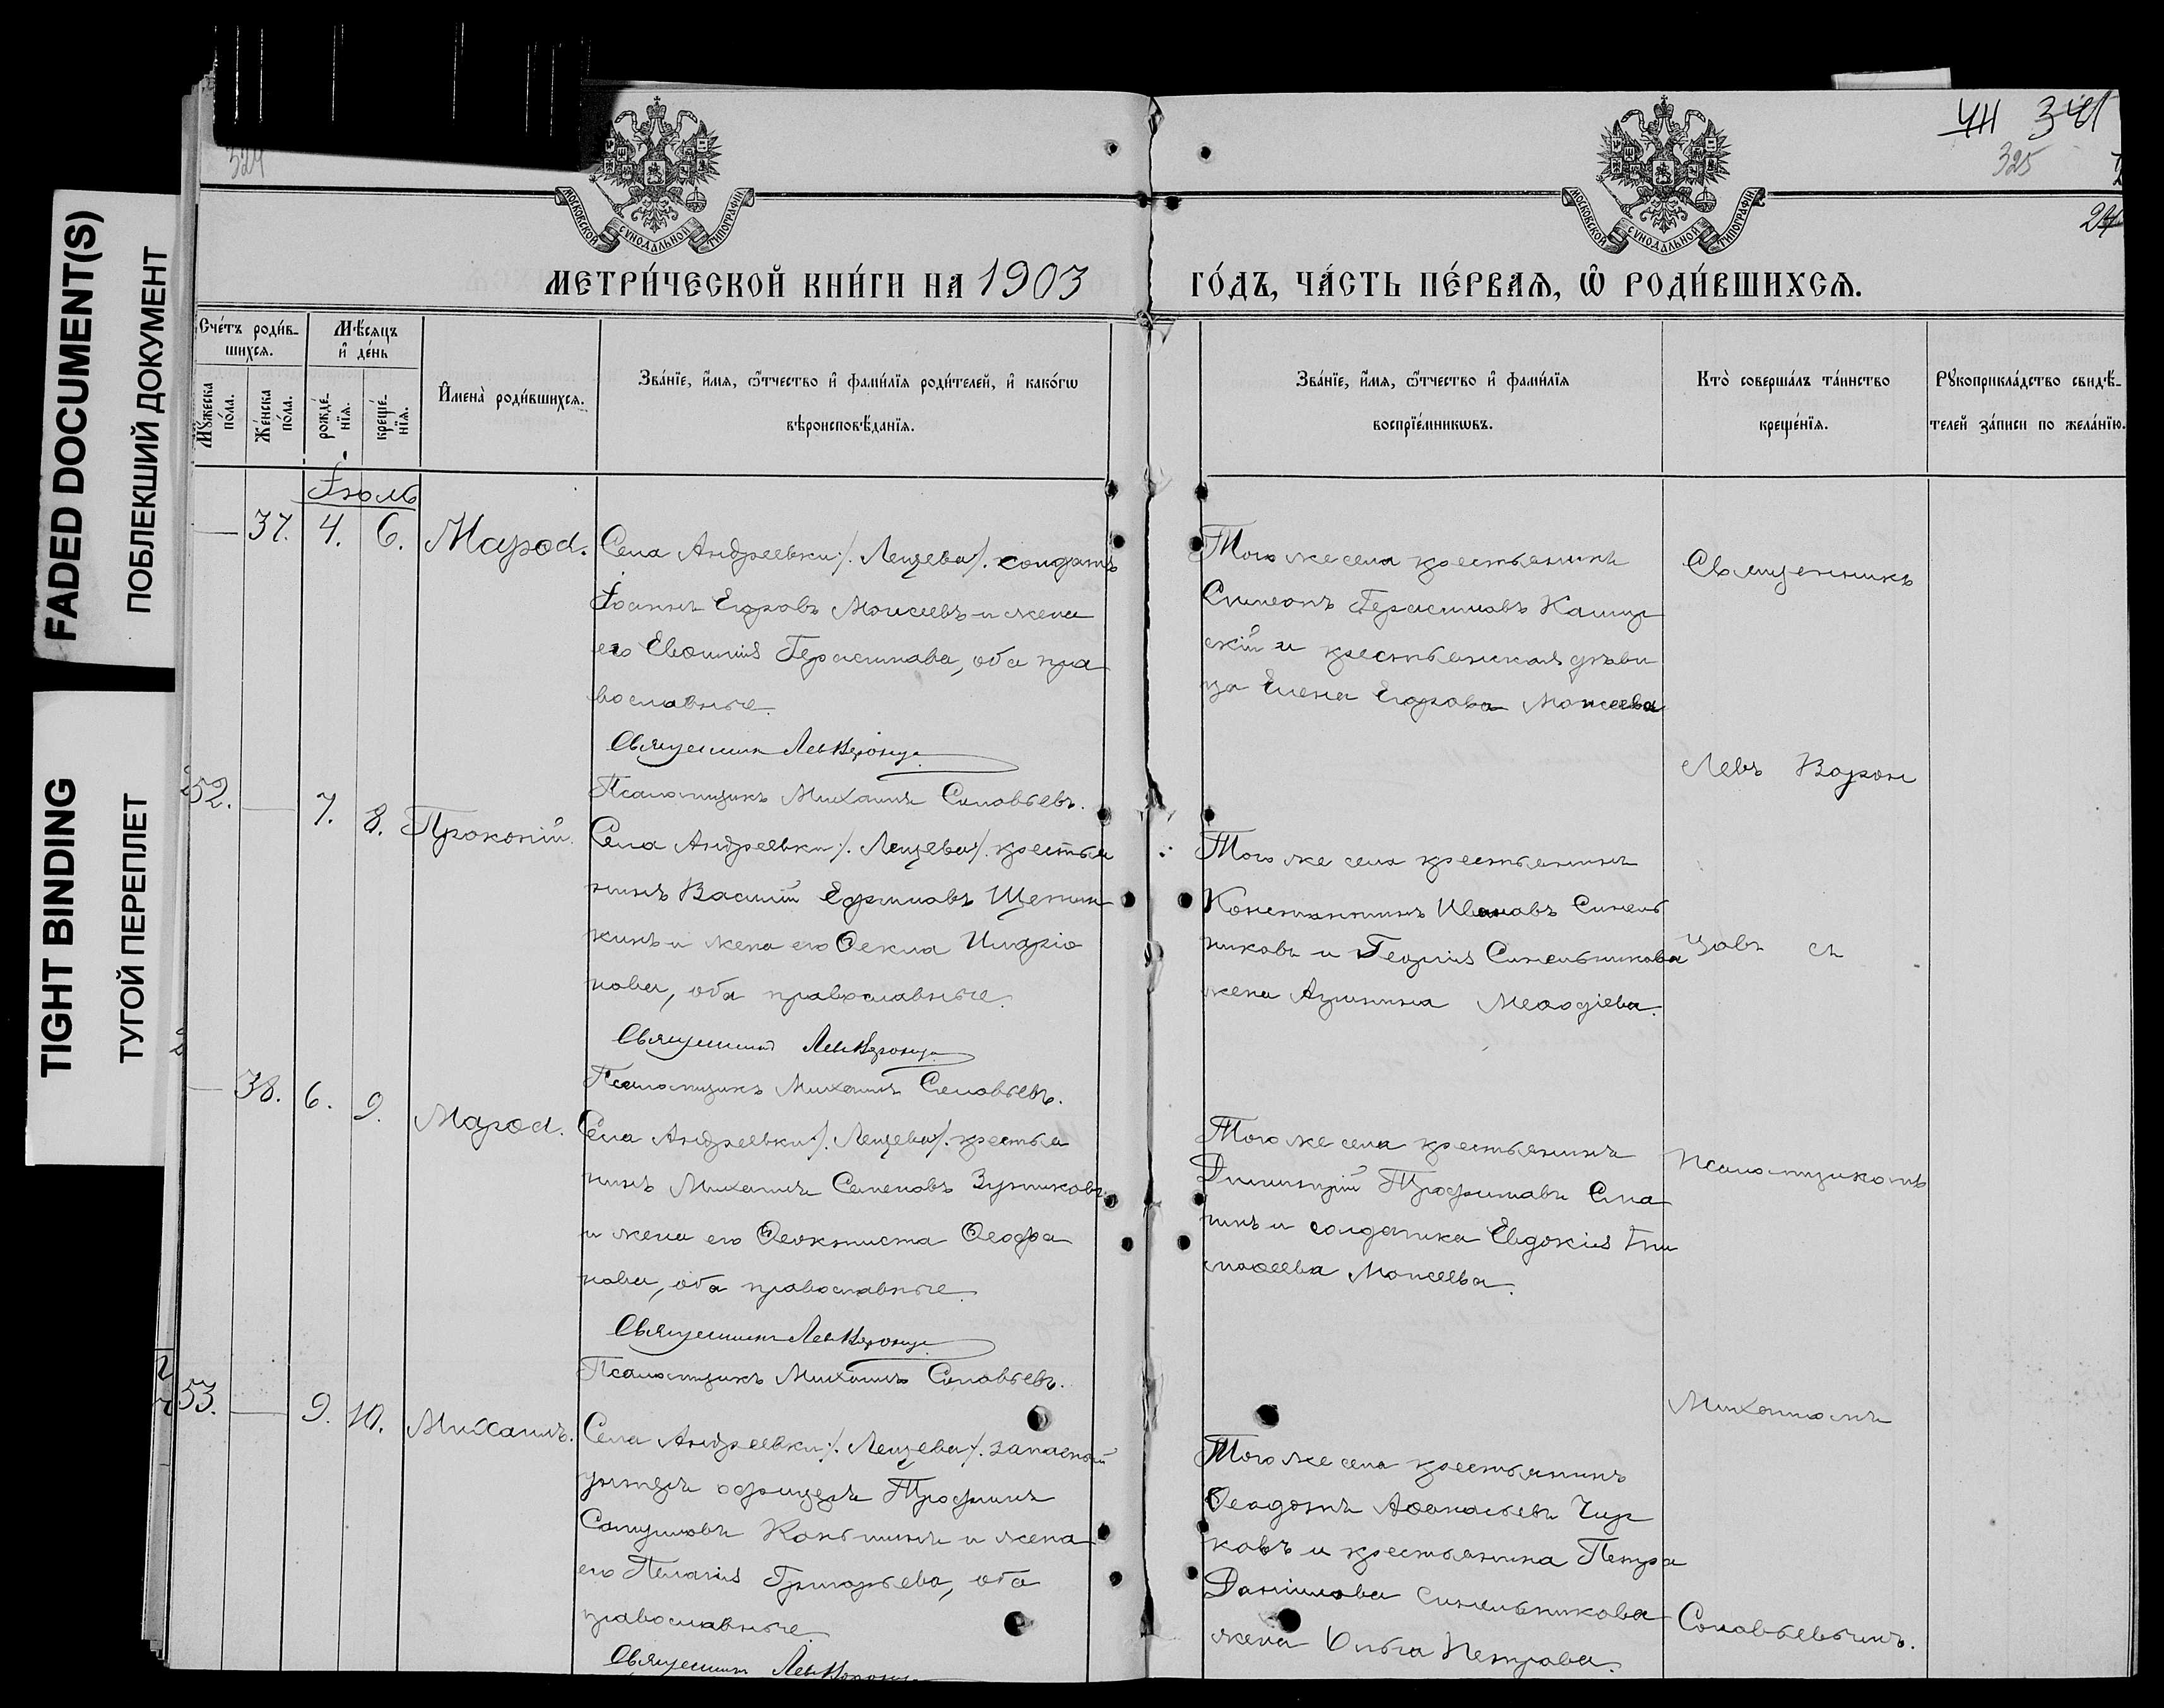 FADED DOCUMENT(S)
ПОБЛЕКШИЙ ДОКУМЕНТ
TIGHT BINDING
ТУГОЙ ПЕРЕПЛЕТ
324
325
МОСКОВСКОЙ СѴНОДАЛЬНОЙ ТИПОГРАФІИ
МОСКОВСКОЙ СѴНОДАЛЬНОЙ ТИПОГРАФІИ
МЕТРИ́ЧЕСКОЙ КНИ́ГИ НА 1903
ГО́ДЪ, ЧА́СТЬ ПЕ́РВАЯ, Ѿ РОДИ́ВШИХСЯ.
Сче́тъ роди́в-
шихся.
Мꙋ́жеска по́ла.
Же́нска по́ла.
Мѣ́сяцъ
и҆ де́нь
рожде́-
нїя.
креще́-
нїя.
И҆мена̀ роди́вшихся.
Зва́нїе, и҆́мя, ѻ҆́тчество и҆ фами́лїя роди́телей, и҆ како́гѡ
вѣроисповѣ́данїя.
Зва́нїе, и҆́мя, ѻ҆́тчество и҆ фами́лїя
воспрїе́мникѡвъ.
Кто̀ соверша́лъ та́инство
креще́нїя.
Рꙋкоприкла́дство свидѣ́-
телей за́писи по жела́нїю.
Іюль
— 37. 4. 6. Марѳа.
Села Андреевки /. Лещева /. солдатъ
Іоаннъ Егоровъ Моисеевъ и жена
его Евѳимія Герасимова, оба пра
вославные.
Священникъ Левъ Воронцовъ
Псаломщикъ Михаилъ Соловьевъ.
Того же села крестьянинъ
Симеонъ Герасимовъ
скій и крестьянская дѣви
ца Елена Егорова Моисеева
52. — 7. 8. Прокопій.
Села Андреевки /. Лещева /. крестья
нинъ Василій Ефимовъ Щетин
кинъ и жена его Ѳекла Иларіо
нова, оба православные.
Священникъ Левъ Воронцовъ
Псаломщикъ Михаилъ Соловьевъ.
Того же села крестьянинъ
Константинъ Ивановъ Синель
никовъ и Георгія Синельникова
жена Агрипина Меѳодіева.
— 38. 6. 9. Марѳа.
Села Андреевки /. Лещева /. крестья
нинъ Михаилъ Семеновъ
и жена его Ѳеоктиста Ѳеофа
нова, оба православные.
Священникъ Левъ Воронцовъ
Псаломщикъ Михаилъ Соловьевъ.
Того же села крестьянинъ
Димитрій Трофимовъ Спа
нъ и солдатка Евдокія Ти
моѳеева Моисеева.
53. — 9. 10. Михаилъ.
Села Андреевки /. Лещева /. запасный
унтеръ офицеръ Трофимъ
Самуиловъ Коньшинъ и жена
его Пелагія Григорьева, оба
православные.
Священникъ Левъ Воронцовъ
Того же села крестьянинъ
Ѳеодотъ Аѳанасьевъ Чир
ковъ и крестьянина Петра
Даніилова Синельникова
жена Ольга Петрова.
Священникъ
Левъ Ворон
цовъ съ
псаломщикомъ
Михаиломъ
Соловьевымъ.